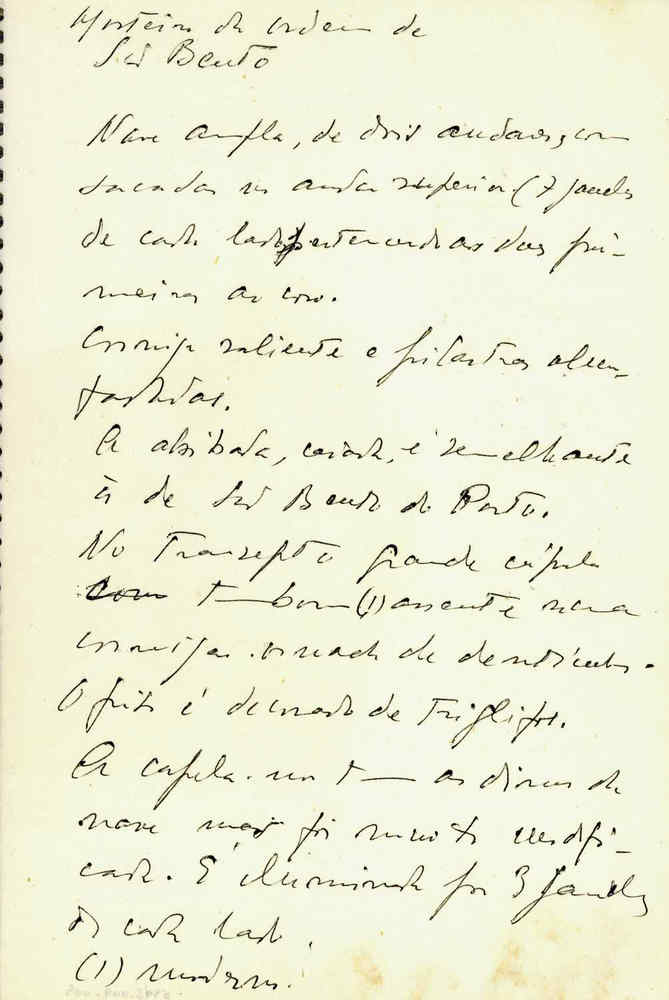 Mosteiro da ordem de
São Bento
Nave ampla, de dois andares, com
sacadas no andar superior (7 janelas
de cada lado pertencendo as duas pri-
meiras ao coro.
Cornija saliente e pilastras
A abóbada, caiada, é semelhante
à de São Bento do Porto.
No Transepto grande cúpula
tambour (1) assente numa
cornija ornada de dentículos.
O friso é decorado de Triglifos.
A capela-mor tem as dimens da
nave mas foi muito modifi-
cada. É iluminada por 3 janelas
de cada lado.
(1) moderno.